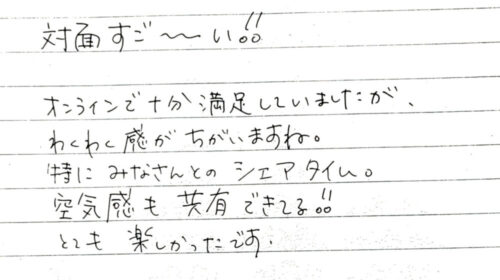 対面すご〜い!!
オンラインで十分満足していましたが、
わくわく感がちがいますね。
特にみなさんとのシェアタイム。
空気感も共有できてる!!
とても楽しかったです.